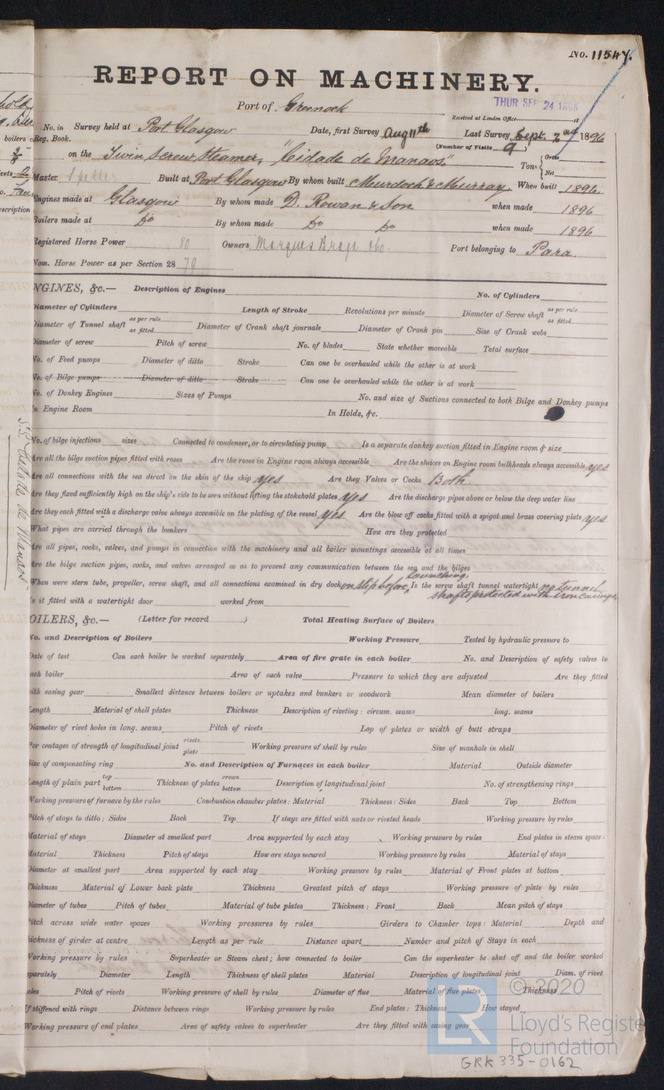 No. 11547.
REPORT ON MACHINERY.
Port of Greenock
THUR SEP 24 1896
Received at London Office 18
No. in Survey held at Port Glasgow Date, first Survey Aug 11th Last Survey Sept. 2nd 1896
Reg. Book. (Number of Visits 9)
on the Twin Screw Steamer, "Cidade de Manaos" Tons { Gross Net
Master Built at Port Glasgow By whom built Murdoch & Murray, When built 1896
Engines made at Glasgow By whom made D. Rowan & Son when made 1896
Boilers made at Do By whom made Do Do when made 1896
Registered Horse Power 80 Owners Port belonging to Para
Nom. Horse Power as per Section 28 78
ENGINES, &c.— Description of Engines No. of Cylinders
Diameter of Cylinders Length of Stroke Revolutions per minute Diameter of Screw shaft as per rule as fitted
Diameter of Tunnel shaft as per rule as fitted Diameter of Crank shaft journals Diameter of Crank pin Size of Crank webs
Diameter of screw Pitch of screw No. of blades State whether moveable Total surface
No. of Feed pumps Diameter of ditto Stroke Can one be overhauled while the other is at work
No. of Bilge pumps Diameter of ditto Stroke Can one be overhauled while the other is at work
No. of Donkey Engines Sizes of Pumps No. and size of Suctions connected to both Bilge and Donkey pumps
In Engine Room In Holds, &c.
No. of bilge injections sizes Connected to condenser, or to circulating pump Is a separate donkey suction fitted in Engine room & size
Are all the bilge suction pipes fitted with roses Are the roses in Engine room always accessible Are the sluices on Engine room bulkheads always accessible yes
Are all connections with the sea direct on the skin of the ship yes Are they Valves or Cocks Both
Are they fixed sufficiently high on the ship's side to be seen without lifting the stokehold plates yes Are the discharge pipes above or below the deep water line
Are they each fitted with a discharge valve always accessible on the plating of the vessel yes Are the blow off cocks fitted with a spigot and brass covering plate yes
What pipes are carried through the bunkers How are they protected
Are all pipes, cocks, valves, and pumps in connection with the machinery and all boiler mountings accessible at all times
Are the bilge suction pipes, cocks, and valves arranged so as to prevent any communication between the sea and the bilges
When were stern tube, propeller, screw shaft, and all connections examined in dry dock on slip before launching. Is the screw shaft tunnel watertight no tunnel
shafts protected with iron casings
Is it fitted with a watertight door worked from
BOILERS, &c.— (Letter for record ) Total Heating Surface of Boilers
No. and Description of Boilers Working Pressure Tested by hydraulic pressure to
Date of test Can each boiler be worked separately Area of fire grate in each boiler No. and Description of safety valves to
each boiler Area of each valve Pressure to which they are adjusted Are they fitted
with easing gear Smallest distance between boilers or uptakes and bunkers or woodwork Mean diameter of boilers
Length Material of shell plates Thickness Description of riveting: circum. seams long. seams
Diameter of rivet holes in long. seams Pitch of rivets Lap of plates or width of butt straps
Per centages of strength of longitudinal joint rivets plate Working pressure of shell by rules Size of manhole in shell
Size of compensating ring No. and Description of Furnaces in each boiler Material Outside diameter
Length of plain part top bottom Thickness of plates crown bottom Description of longitudinal joint No. of strengthening rings
Working pressure of furnace by the rules Combustion chamber plates: Material Thickness: Sides Back Top Bottom
Pitch of stays to ditto: Sides Back Top If stays are fitted with nuts or riveted heads Working pressure by rules
Material of stays Diameter at smallest part Area supported by each stay Working pressure by rules End plates in steam space:
Material Thickness Pitch of stays How are stays secured Working pressure by rules Material of stays
Diameter at smallest part Area supported by each stay Working pressure by rules Material of Front plates at bottom
Thickness Material of Lower back plate Thickness Greatest pitch of stays Working pressure of plate by rules
Diameter of tubes Pitch of tubes Material of tube plates Thickness: Front Back Mean pitch of stays
Pitch across wide water spaces Working pressures by rules Girders to Chamber tops: Material Depth and
thickness of girder at centre Length as per rule Distance apart Number and pitch of Stays in each
Working pressure by rules Superheater or Steam chest; how connected to boiler Can the superheater be shut off and the boiler worked
separately Diameter Length Thickness of shell plates Material Description of longitudinal joint Diam. of rivet
holes Pitch of rivets Working pressure of shell by rules Diameter of flue Material of flue plates Thickness
If stiffened with rings Distance between rings Working pressure by rules End plates: Thickness How stayed
Working pressure of end plates Area of safety valves to superheater Are they fitted with easing gear
S.S. Cidade de Manaos
LR
© 2020
Lloyd's Registe
Foundation
GRK 335-0162